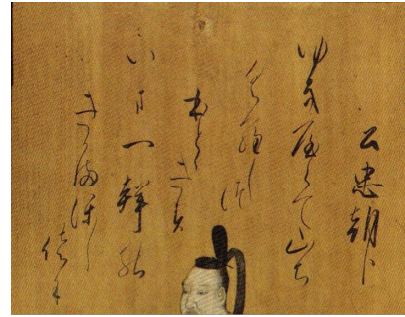 公忠朝臣
ゆきやらて山ち
くらしつ
ほとゝきす
いま一聲の
きかまほし
さに